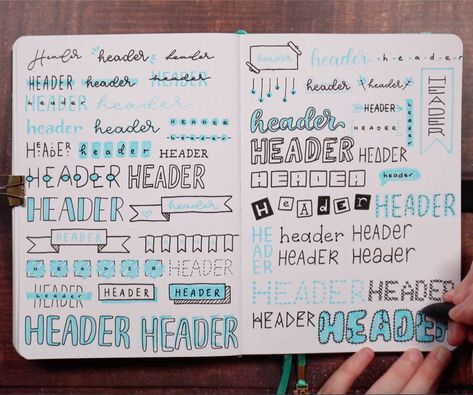 Header header header
HEADER header HEADER
header
HEADER header
header
header header HEADER
HEADER
HEADER header HEADER
HEADER HEADER
HEADER header
HEADER
HEADER HEADER
HEADER HEADER HEADER
header
HEADER HEADER
header header header
header header
HEADER
header HEADER
HEADER
header
HEADER HEADER
HEADER header
HEADER HEADER
HE
AD
ER
header Header
HEADER Header
HEADER HEADER
HEADER HEADER